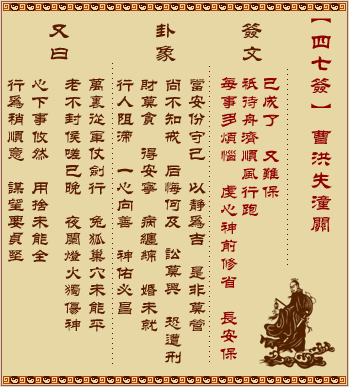 【四七簽】 曹洪失潼關
簽文
已成了 又難保
祇待舟濟順風行跑
每事多煩惱 虔心神前修省 長安保
卦象
當安份守己 以靜為吉 是非莫管
尚不知戒 后悔何及 訟莫興 恐遭刑
財莫貪 得安寧 病纏綿 婚未就
行人阻滯 一心向善 神佑必昌
又曰
萬裏從軍仗劍行 兔狐巢穴未能平
老不封侯嗟已晚 夜闌燈火獨傷神
心下事攸然 用捨未能全
行為稍順意 謀望要貞堅